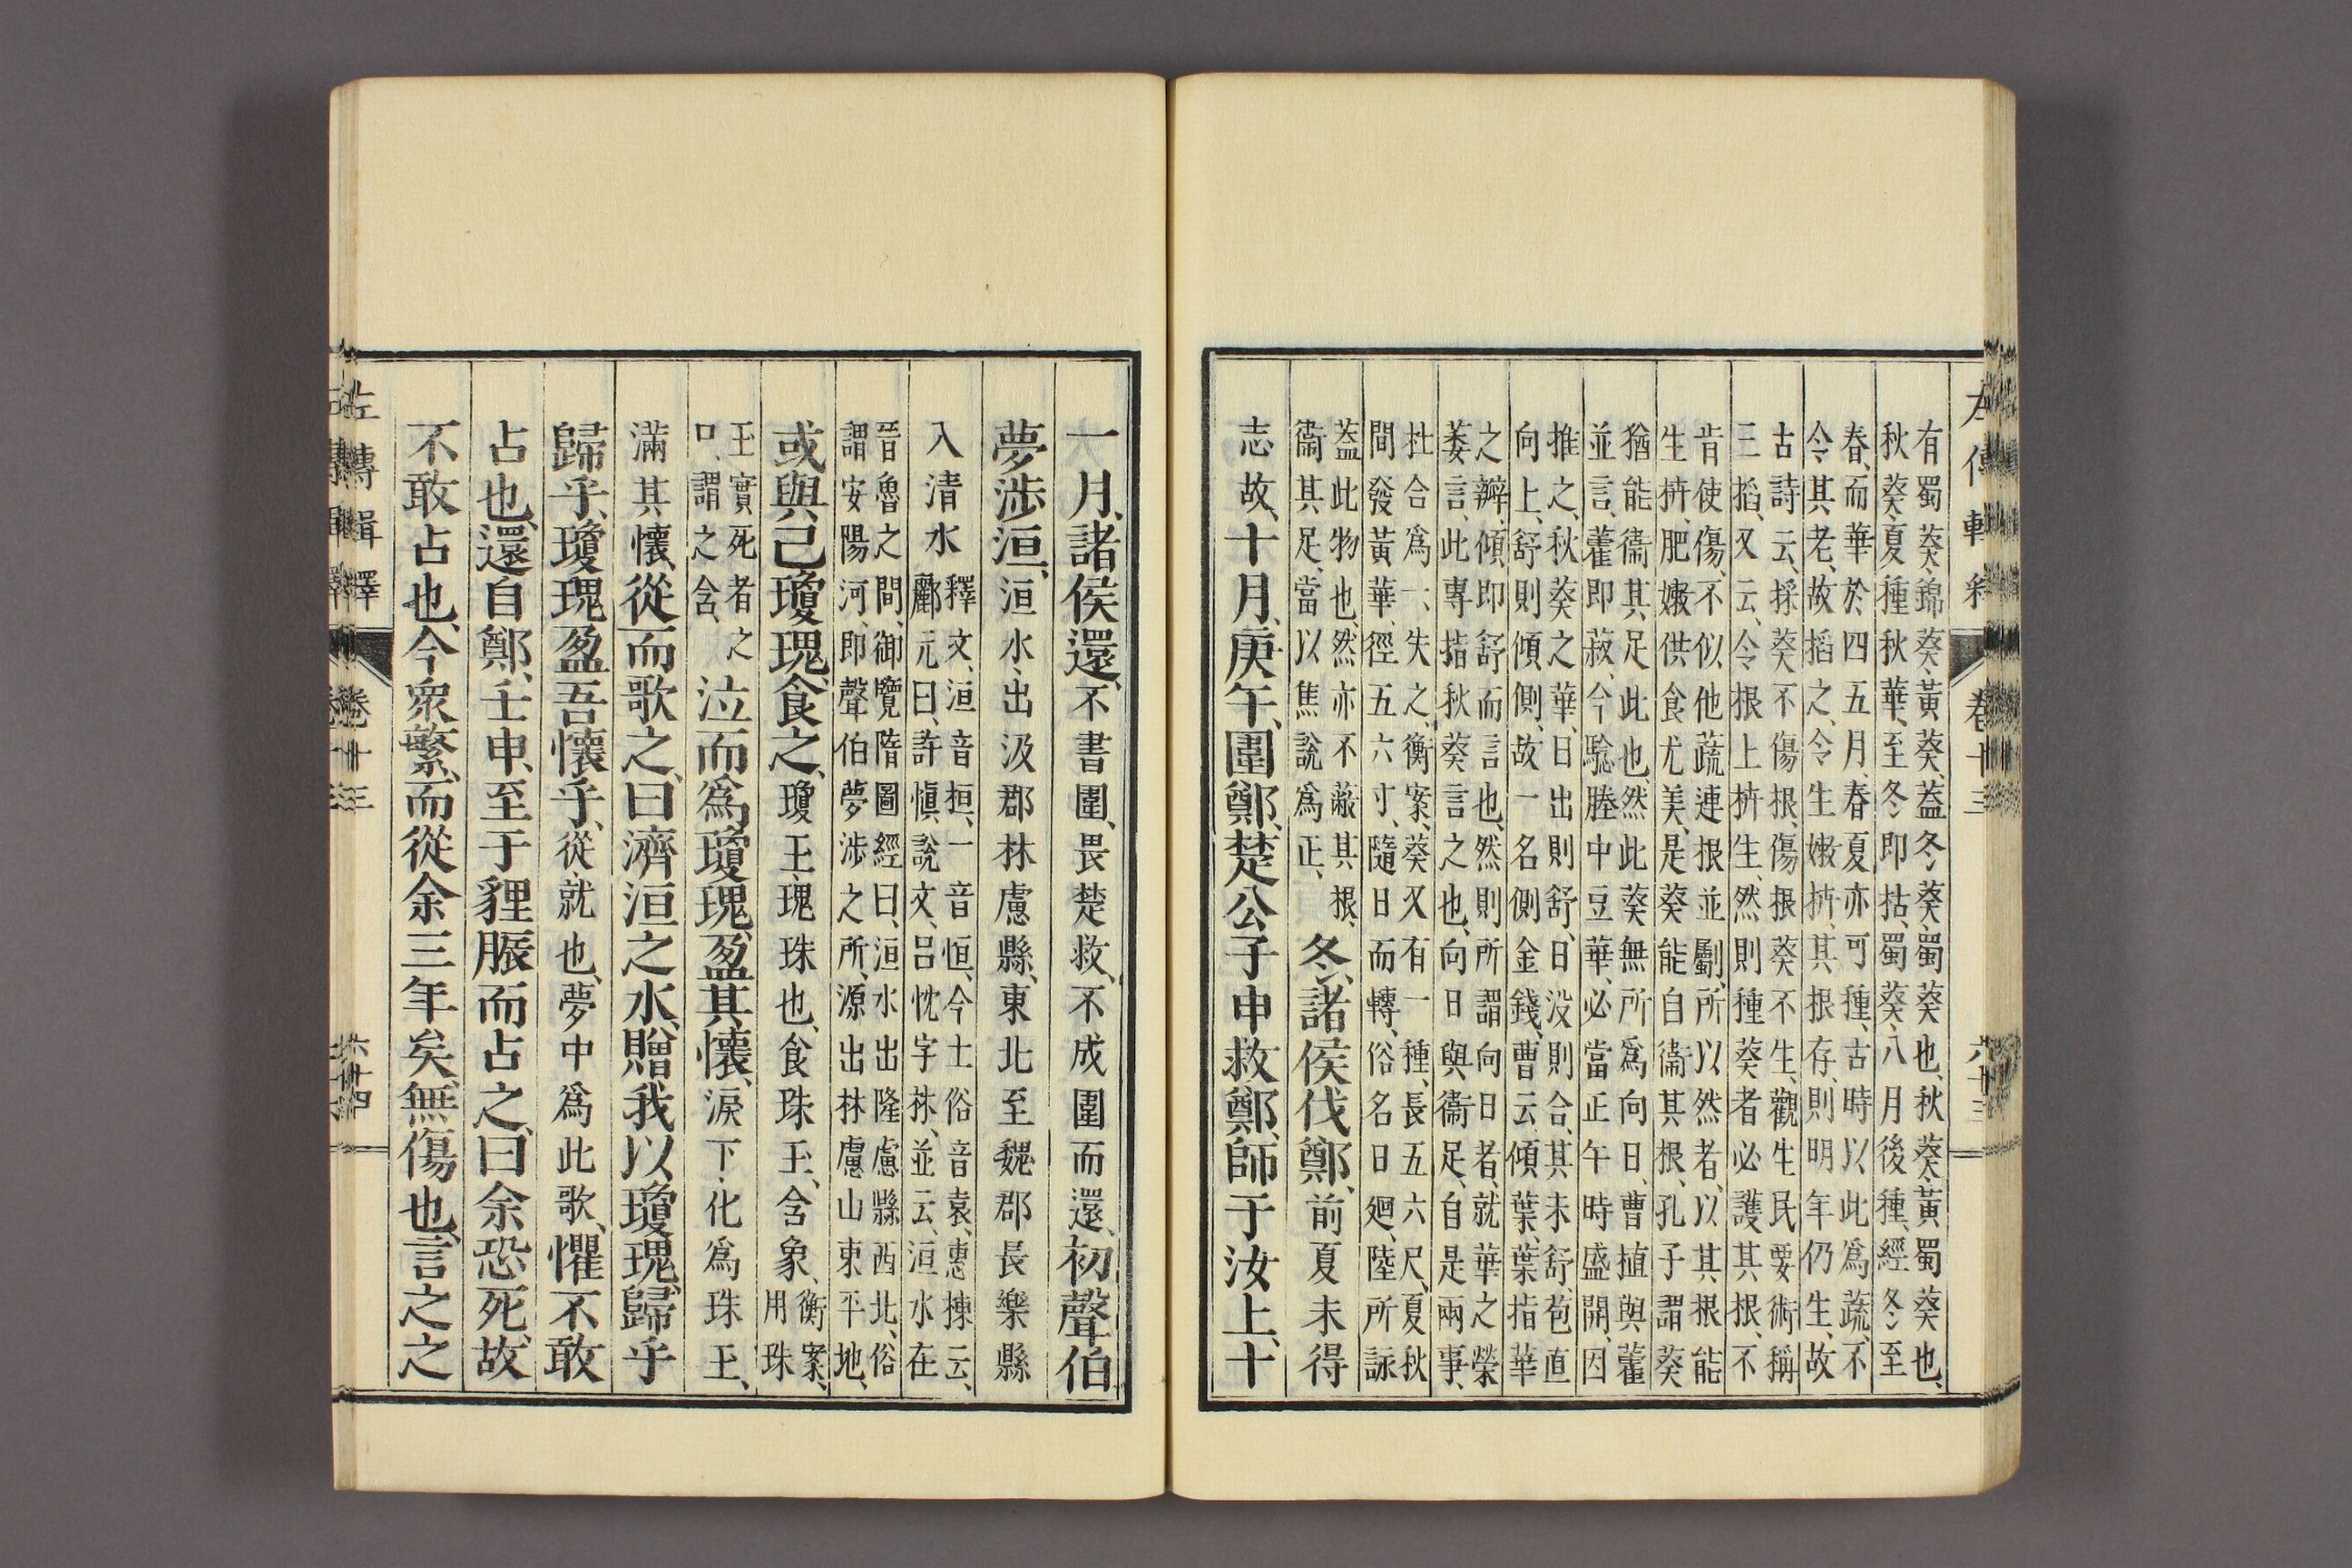 左傳輯釋 卷十三 六十三
有蜀葵、錦葵、黃葵、蓋冬葵、蜀葵也、秋葵、黃蜀葵也、
秋葵、夏種秋華、至冬即枯、蜀葵、八月後種、經冬至
春、而華於四五月、春夏亦可種、古時以此爲蔬、不
令其老、故搯之、令生嫩枿、其根存、則明年仍生、故
古詩云、採葵不傷根、傷根葵不生、觀生民要術稱
三搯、又云、令根上枿生、然則種葵者必護其根、不
肯使傷、不似他蔬連根並劚、所以然者、以其根能
生枿、肥嫩供食尤美、是葵能自衞其根、孔子謂葵
猶能衞其足此也、然此葵無所爲向日、曹植與藿
並言、藿即菽、今騐塍中豆華、必當正午時盛開、因
推之、秋葵之華、日出則舒、日沒則合、其未舒、苞直
向上、舒則傾側、故一名側金錢、曹云、傾葉、葉指華
之瓣、傾、即舒而言也、然則所謂向日者、就華之榮
萎言、此專指秋葵言之也、向日與衞足、自是兩事、
杜合爲一、失之、衡案、葵又有一種、長五六尺、夏秋
間發黃華、徑五六寸、隨日而轉、俗名日迴、陸所詠
蓋此物也、然亦不蔽其根、
衞其足、當以焦說爲正、
冬、諸侯伐鄭、前夏未得
志故、十月、庚午、圍鄭、楚公子申救鄭、師于汝上、十
一月、諸侯還、不書圍、畏楚救、不成圍而還、初聲伯
夢涉洹、洹水、出汲郡林慮縣、東北至魏郡長樂縣
入清水
釋文、洹音桓、一音恒、今土俗音袁、惠棟云、
酈元曰、許愼說文、呂忱字林、並云、洹水在
晉魯之間、御覽隋圖經曰、洹水出隆慮縣西北、俗
謂安陽河、即聲伯夢涉之所、源出林慮山東平地、
或與己瓊瑰、食之、瓊玉、瑰珠也、食珠玉、含象、
衡案、
用珠
玉實死者之
口、謂之含、
泣而爲瓊瑰、盈其懷、淚下、化爲珠玉、
滿其懷、從而歌之、曰濟洹之水、贈我以瓊瑰、歸乎
歸乎、瓊瑰盈吾懷乎、從、就也、夢中爲此歌、懼不敢
占也、還自鄭、壬申、至于貍脤而占之、曰余恐死、故
不敢占也、今衆繁、而從余三年矣、無傷也、言之之
左傳輯釋 卷十三 六十四